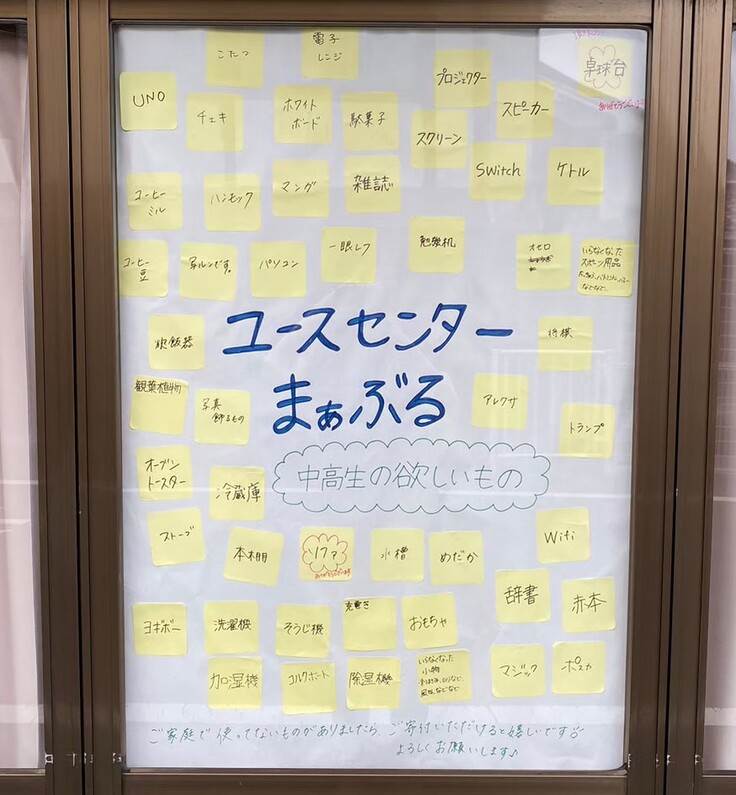 こたつ
電子
レンジ
プロジェクター
卓球台
UNO
チェキ
ホワイト
ボード
駄菓子
スクリーン
スピーカー
コーヒー
ミル
ハンモック
マンガ
雑誌
Switch
ケトル
コーヒー
豆
写ルンです。
パソコン
一眼レフ
勉強机
オセロ
いらなくなった
スポーツ用品
などなど。
ユースセンター
まぁぶる
中高生の欲しいもの
炊飯器
将棋
観葉植物
写真
飾るもの
アレクサ
トランプ
オーブン
トースター
冷蔵庫
ストーブ
本棚
ソファ
ありがとうございます
水槽
めだか
Wifi
辞書
赤本
ヨギボー
洗濯機
そうじ機
充電き
おもちゃ
加湿機
コルクボード
除湿機
いらなくなった
小物
などなど
マジック
ポスカ
ご家庭で使ってないものがありましたら、ご寄付いただけると嬉しいです
よろしくお願いします♪